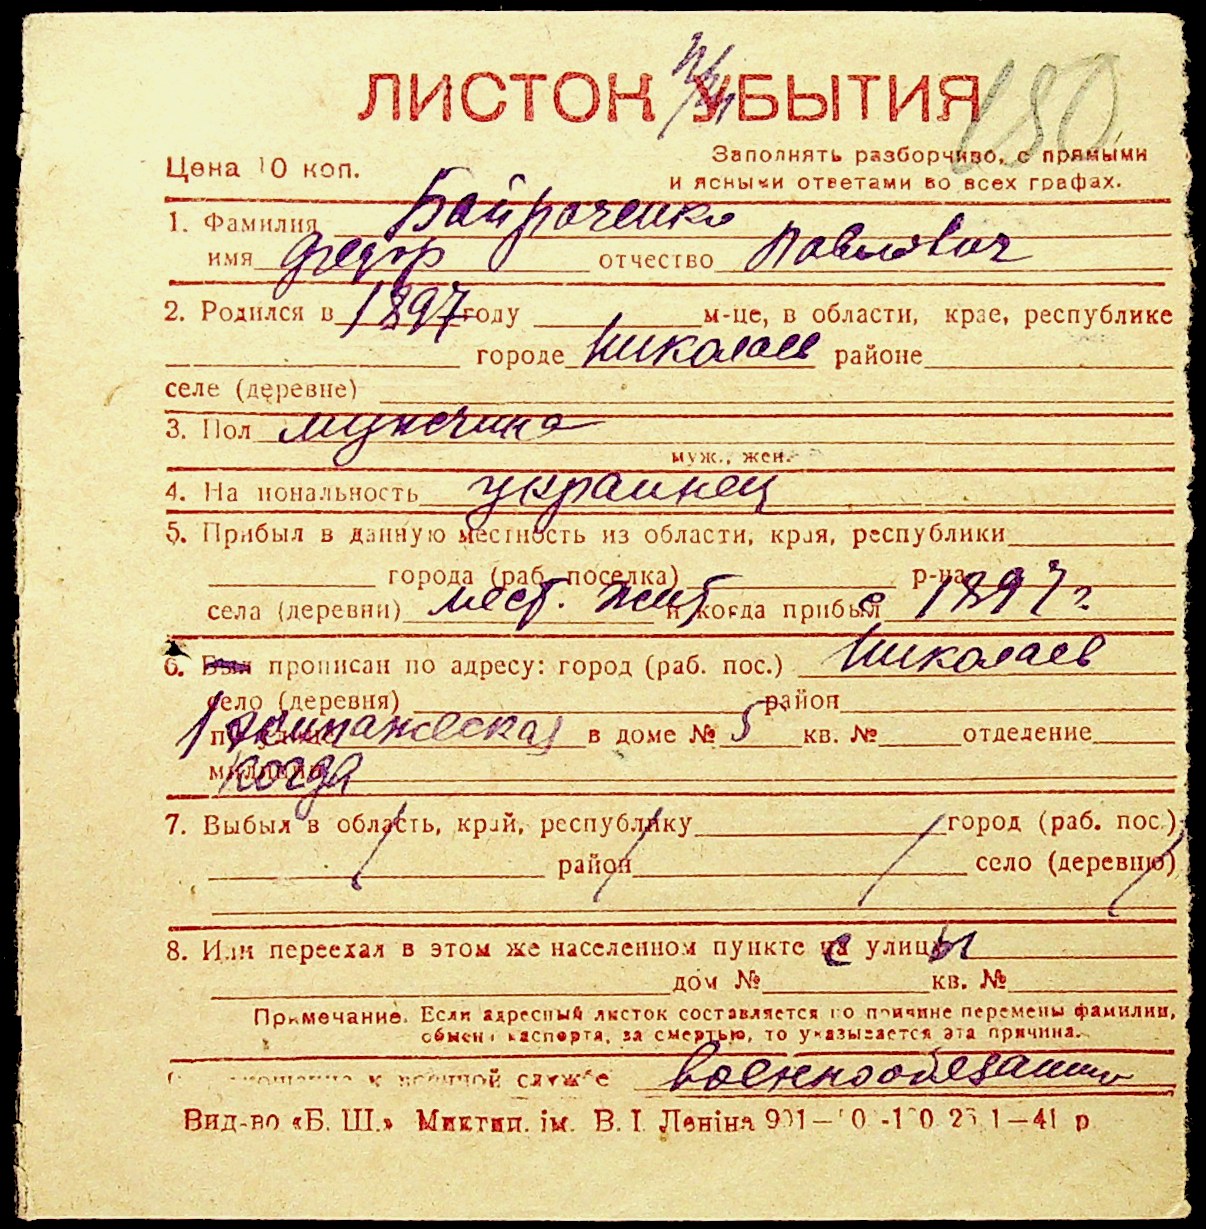 ЛИСТОК УБЫТИЯ 150
Цена 10 коп.
Заполнять разборчиво, с прямыми
и ясными ответами во всех графах.
1. Фамилия Байраченко
имя Федор отчество Павлович
2. Родился в 1897 году м-це, в области, крае, республике
городе Николаев районе
селе (деревне)
3. Пол мужчина
муж., жен.
4. Национальность украинец
5. Прибыл в данную местность из области, края, республики
города (раб. поселка) р-на
села (деревни) мест. жит и когда прибыл с 1897 г
6. Был прописан по адресу: город (раб. пос.) Николаев
село (деревня) район
в доме № 5 кв. № отделение
милиции когда
7. Выбыл в область, край, республику город (раб. пос.)
район село (деревню)
8. Или переехал в этом же населенном пункте с улицы
дом № кв. №
Примечание. Если адресный листок составляется по причине перемены фамилии,
обмена паспорта, за смертью, то указывается эта причина.
к военной службе военнообязанный
Вид-во «Б. Ш.» Миктип. ім. В. І. Леніна